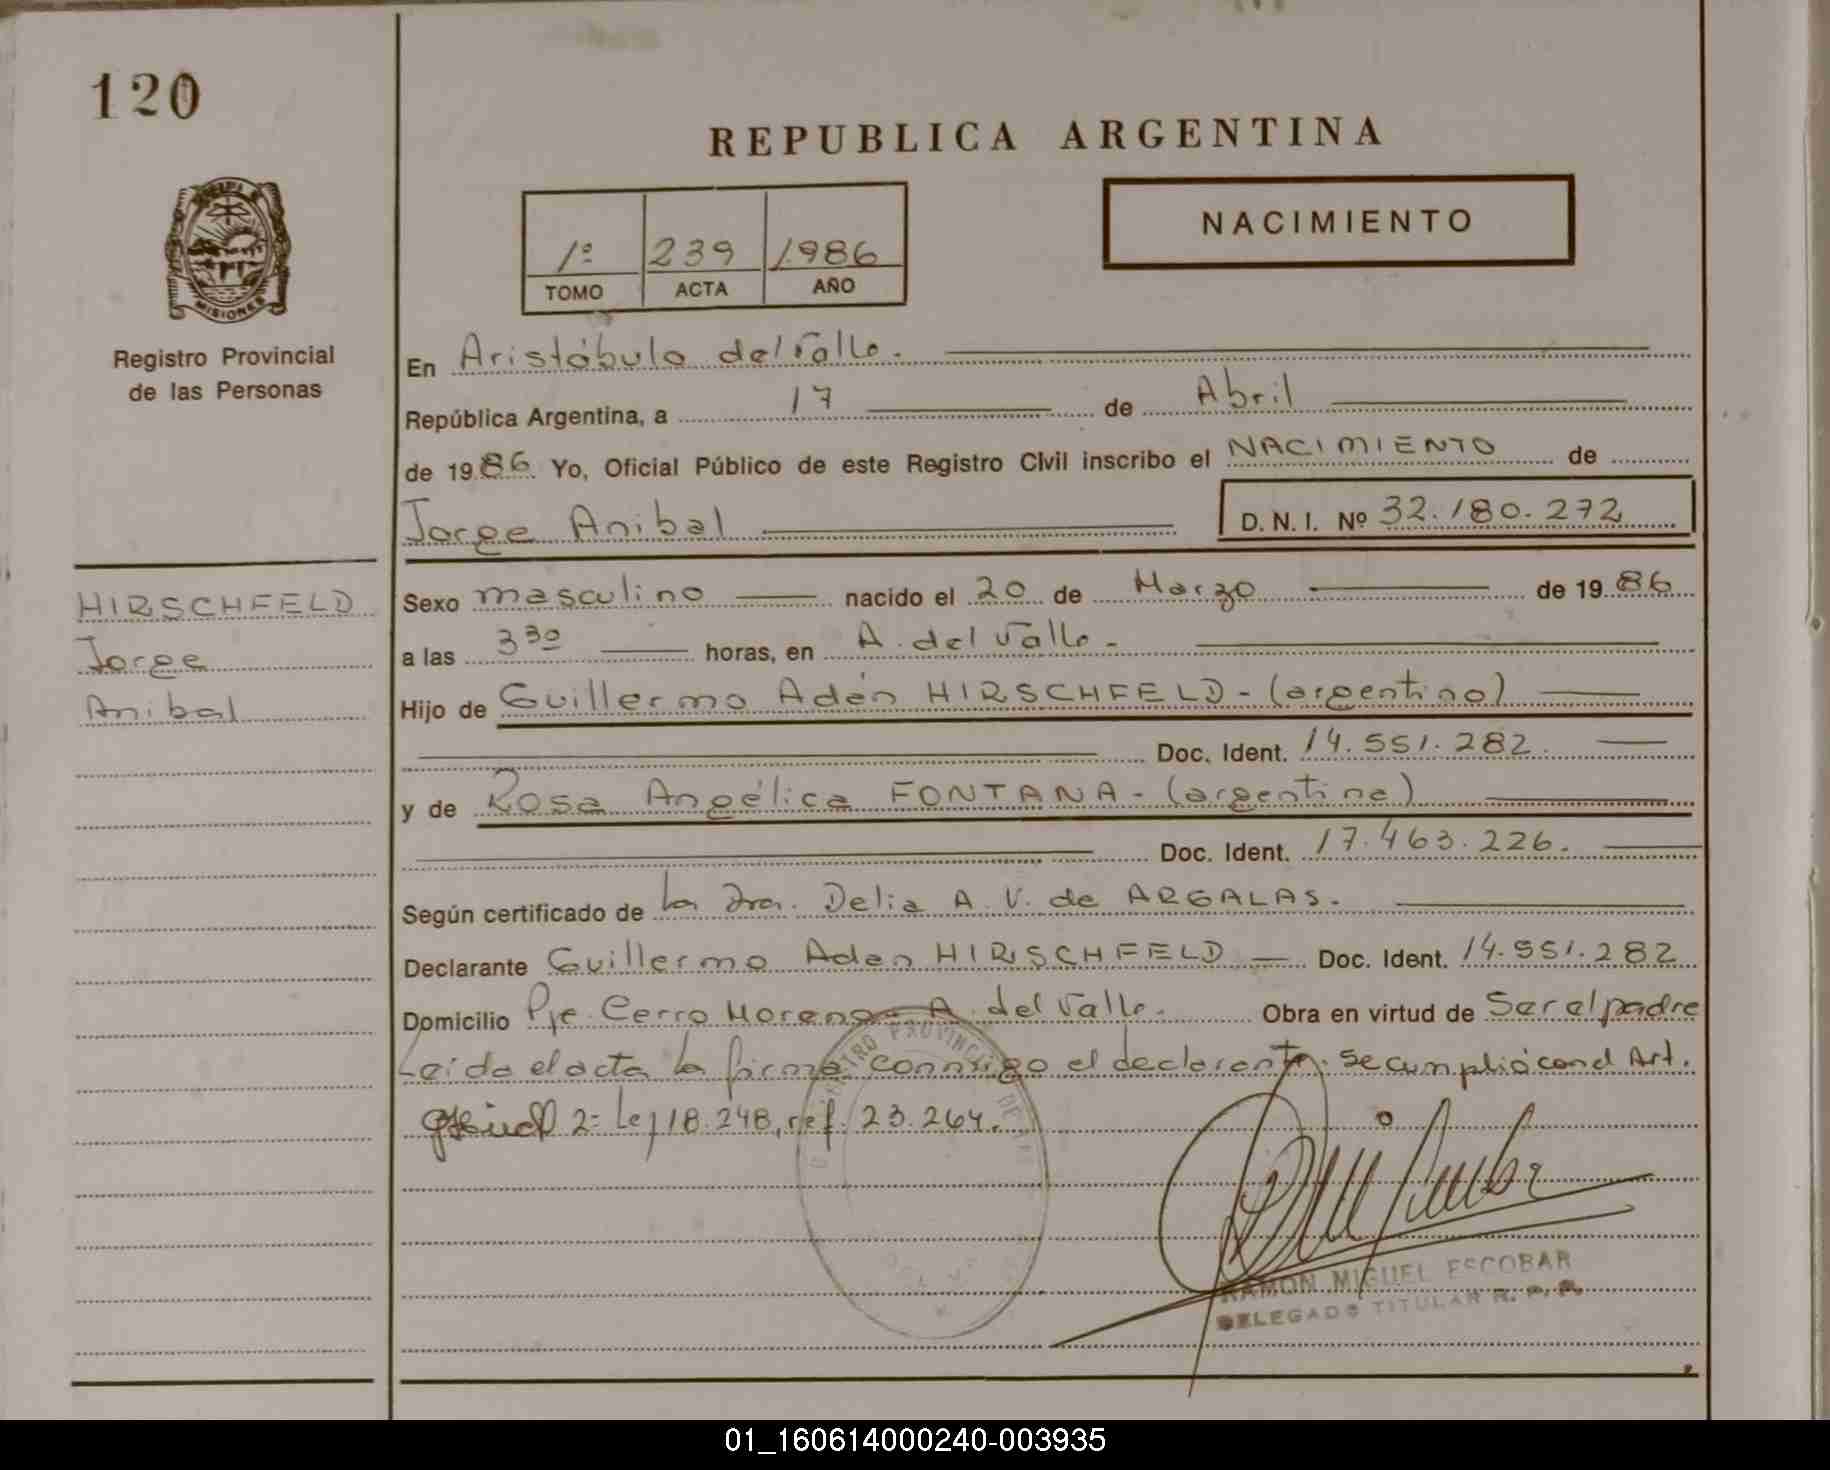 120
REPUBLICA ARGENTINA
NACIMIENTO
1º 239 1986
TOMO ACTA AÑO
MISIONES
Registro Provincial
de las Personas
En Aristóbulo del Valle.
República Argentina, a 17 de Abril
de 1986 Yo, Oficial Público de este Registro Civil inscribo el NACIMIENTO de
Jorge Anibal D. N. I. Nº 32.180.272
HIRSCHFELD
Jorge
Anibal
Sexo masculino nacido el 20 de Marzo de 1986
a las 3 30 horas, en A. del Valle -
Hijo de Guillermo Adán HIRSCHFELD - (argentino)
Doc. Ident. 14.551.282.
y de Rosa Angélica FONTANA - (argentina)
Doc. Ident. 17.463.226.
Según certificado de la Dra. Delia A. V. de ARGALAS.
Declarante Guillermo Adan HIRSCHFELD — Doc. Ident. 14.551.282
Domicilio Pje. Cerro Moreno - A. del Valle. Obra en virtud de Ser el padre
Leída el acta la firma conmigo el declarante. Se cumplió con el Art.
2º Ley 18.248, ref. 23.264.
RAMON MIGUEL ESCOBAR
DELEGADO TITULAR R. P. P.
01_160614000240-003935